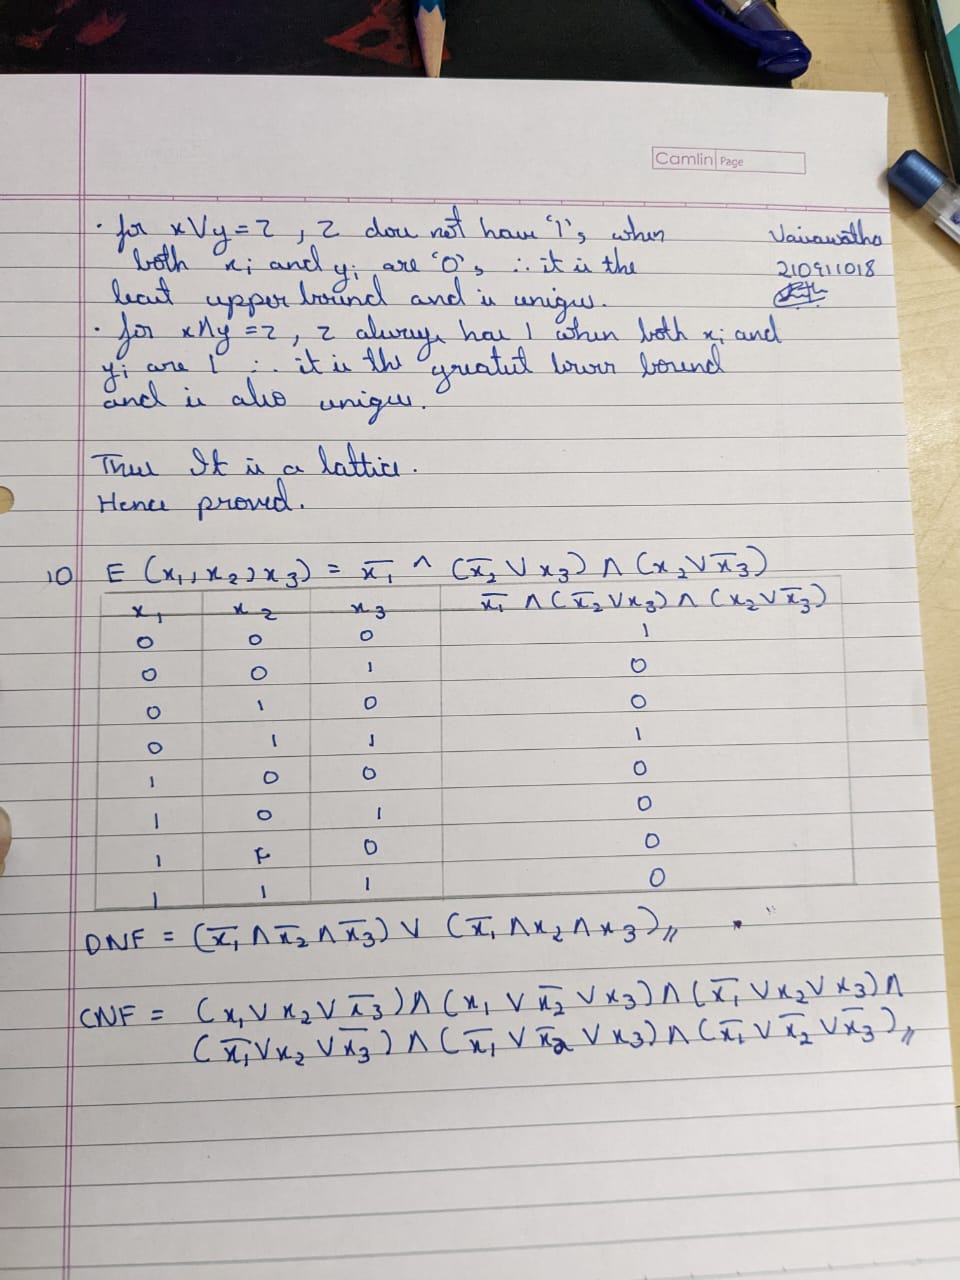 Camlin Page
· for x∨y=z , z does not have '1's when
both xi and yi are '0's ∴ it is the
least upper bound and is unique.
210911018
· for x∧y=z , z always has 1 when both xi and
yi are 1 ∴ it is the greatest lower bound
and is also unique.
Thus It is a lattice.
Hence proved.
10 E (x₁, x₂, x₃) = x̄₁ ∧ (x̄₂ ∨ x₃) ∧ (x₂ ∨ x̄₃)
x₁ x₂ x₃ x̄₁ ∧ (x̄₂ ∨ x₃) ∧ (x₂ ∨ x̄₃)
0 0 0 1
0 0 1 0
0 1 0 0
0 1 1 1
1 0 0 0
1 0 1 0
1 0 0
1 1 1 0
DNF = (x̄₁ ∧ x̄₂ ∧ x̄₃) ∨ (x̄₁ ∧ x₂ ∧ x₃)//
CNF = (x₁ ∨ x₂ ∨ x̄₃) ∧ (x₁ ∨ x̄₂ ∨ x₃) ∧ (x̄₁ ∨ x₂ ∨ x₃) ∧
(x̄₁ ∨ x₂ ∨ x̄₃) ∧ (x̄₁ ∨ x̄₂ ∨ x₃) ∧ (x̄₁ ∨ x̄₂ ∨ x̄₃)//